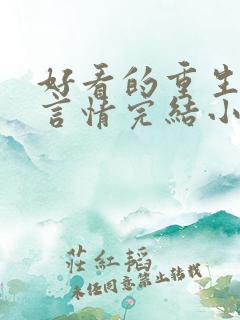 好看的重生
言情完結小
莊紅韜
未经同意禁止转载